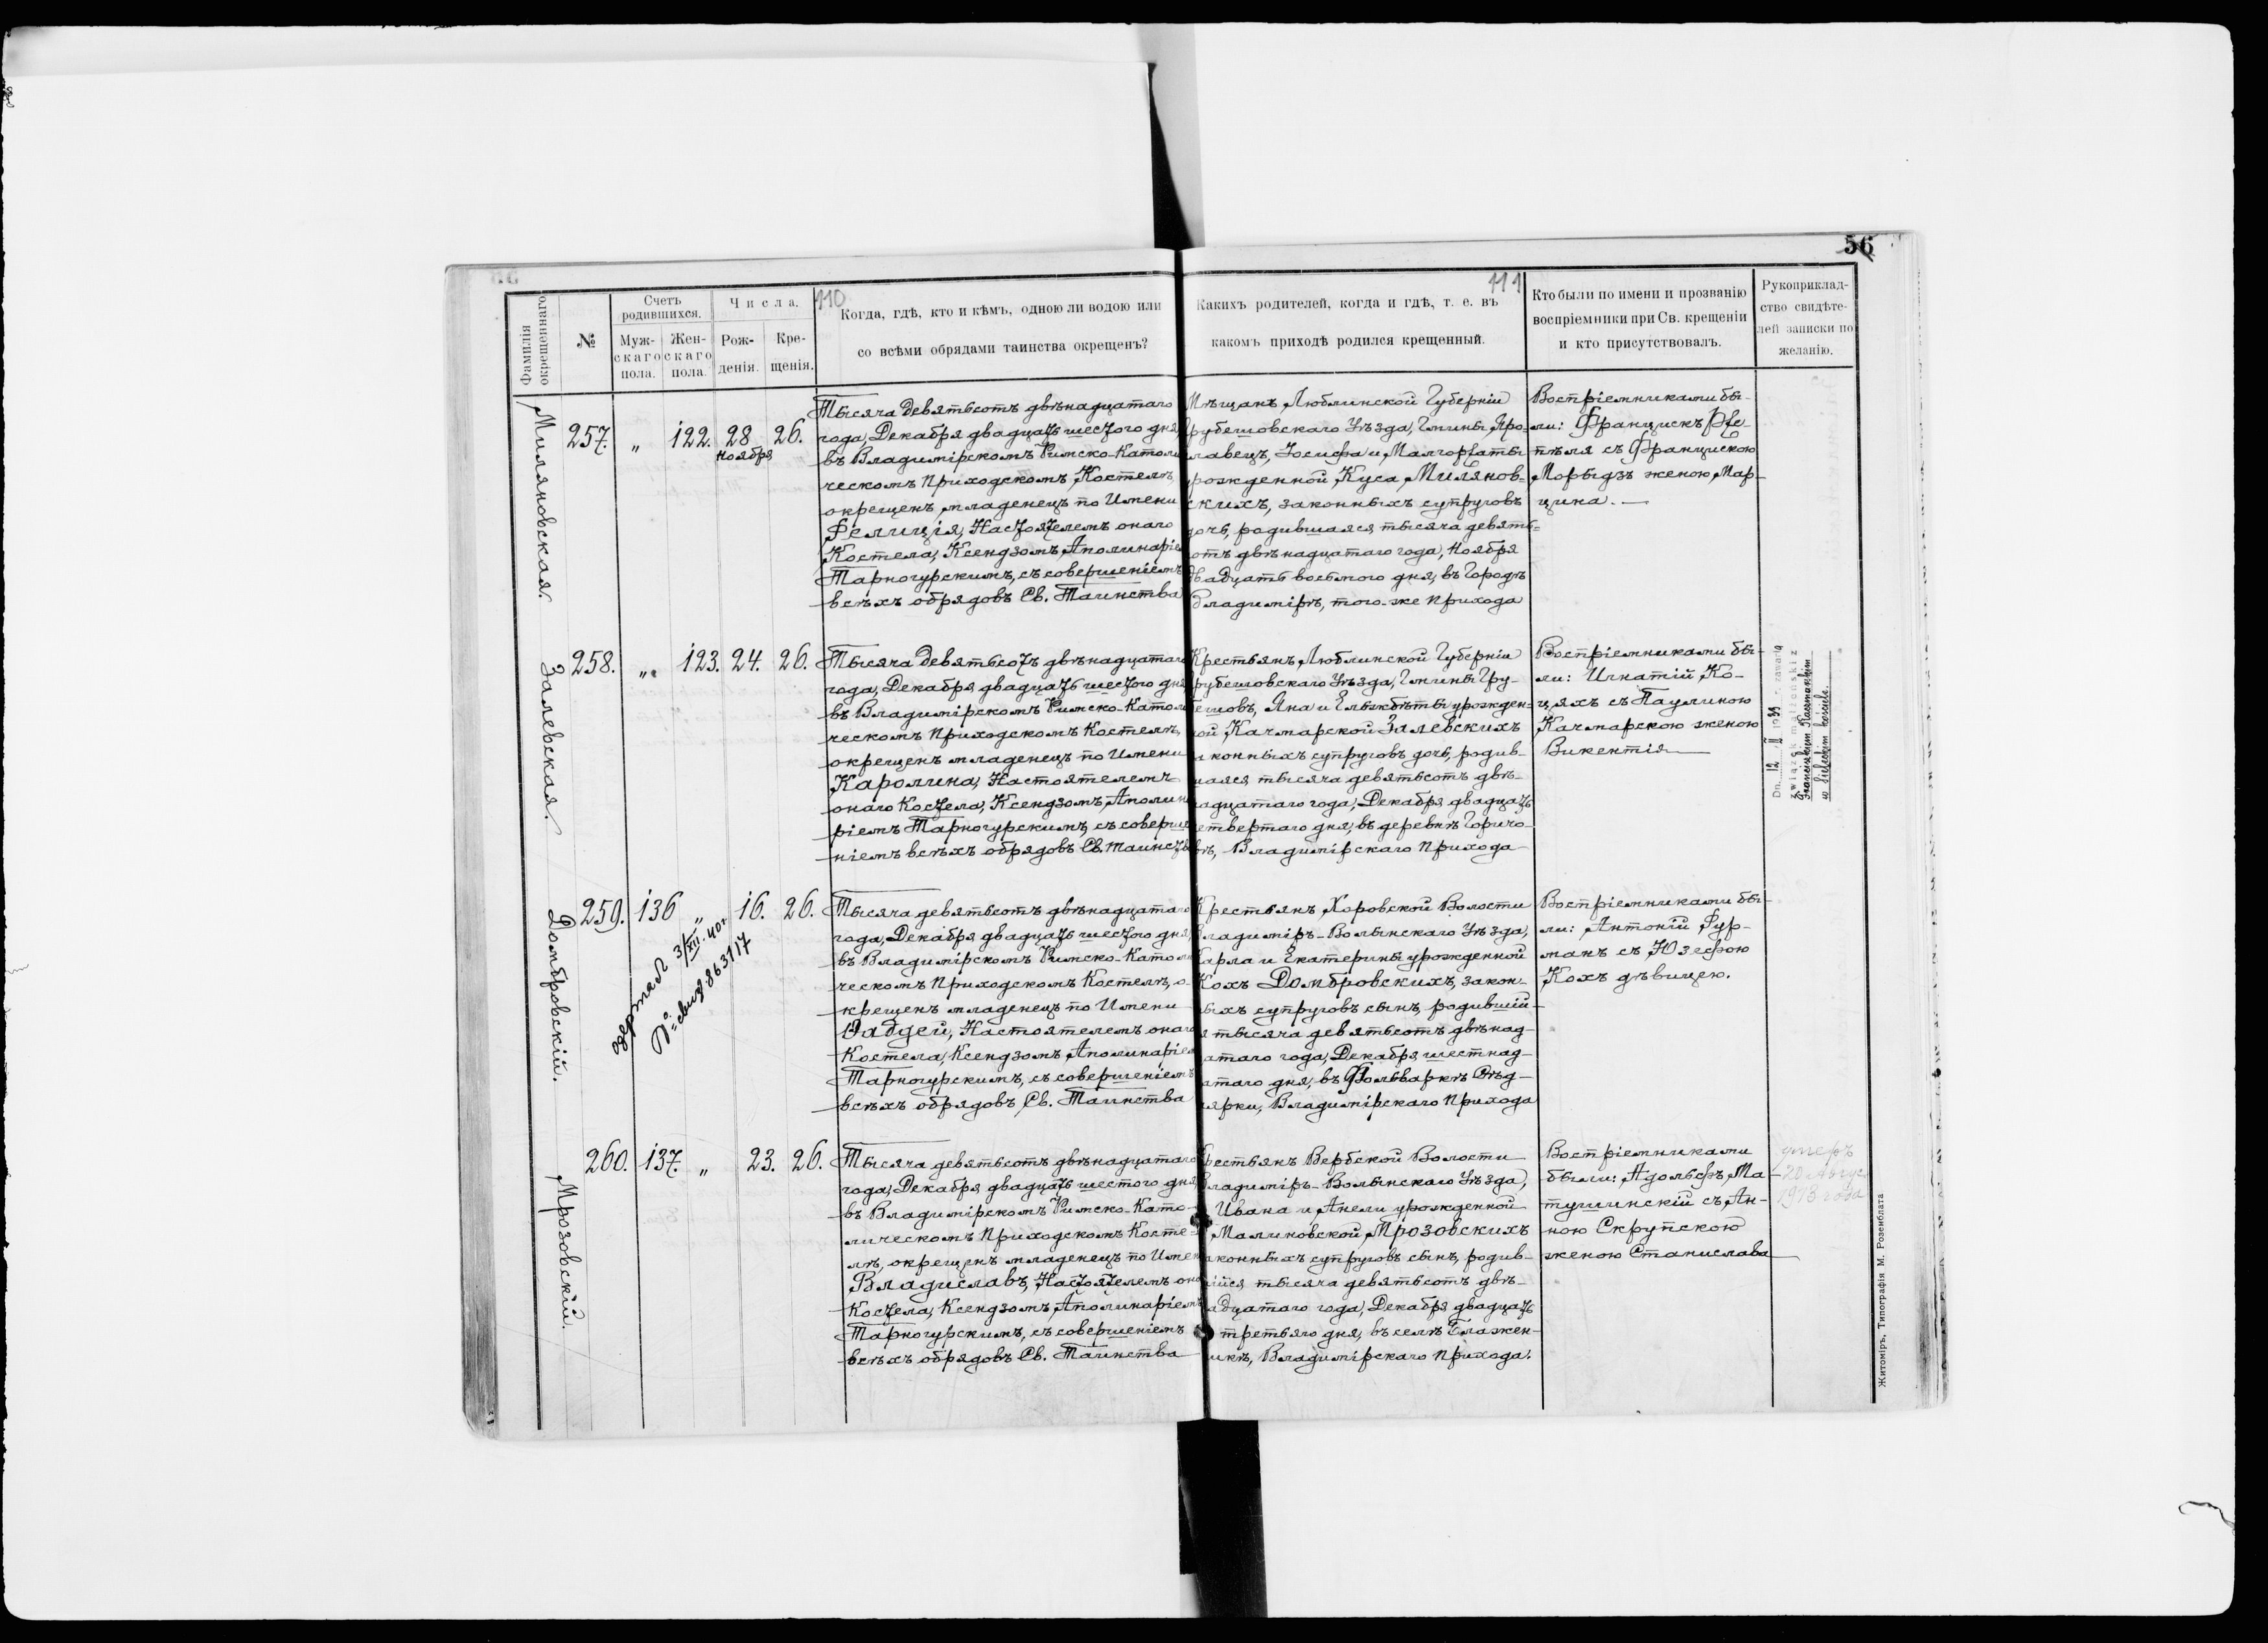 56
110
111
Фамилія окрещеннаго
№
Счетъ родившихся.
Муж-
скаго
пола.
Жен-
скаго
пола.
Числа.
Рож-
денія.
Кре-
щенія.
Когда, гдѣ, кто и кѣмъ, одною ли водою или
со всѣми обрядами таинства окрещенъ?
Какихъ родителей, когда и гдѣ, т. е. въ
какомъ приходѣ родился крещенный.
Кто были по имени и прозванію
воспріемники при Св. крещеніи
и кто присутствовалъ.
Рукоприклад-
ство свидѣте-
лей записки по
желанію.
Миляновская.
257. „ 122. 28 26.
Ноября
Тысяча девятьсотъ двѣнадцатаго
года, Декабря двадцать шестого дня,
въ Владимірскомъ Римско-Катол
ческомъ Приходскомъ Костелѣ,
окрещенъ младенецъ по Имени
Фелиція, Настоятелемъ онаго
Костела, Ксендзомъ Аполинаріе
Тарногурскимъ, съ совершеніемъ
всѣхъ обрядовъ Св. Таинства
Мѣщанъ Люблинской Губерніи
рубешовскаго Уѣзда, Гмины Яро-
лавецъ, Іосифа и Малгоржаты
рожденной Куса Милянов-
скихъ, законныхъ супруговъ
дочь, родившаяся тысяча девять-
отъ двѣнадцатаго года, Ноября
двадцать восьмого дня, въ Городѣ
Владимірѣ, того-же Прихода
Воспріемниками бы-
ли: Францискъ
пѣля съ Францискою
Морыдзъ женою Мар-
цина.
Залевская.
258. „ 123. 24. 26.
Тысяча девятьсотъ двѣнадцатаго
года, Декабря двадцать шестого дня
въ Владимірскомъ Римско-Катол
ческомъ Приходскомъ Костелѣ,
окрещенъ младенецъ по Имени
Каролина, Настоятелемъ
онаго Костела, Ксендзомъ Аполин
ріемъ Тарногурскимъ, съ соверше
ніемъ всѣхъ обрядовъ Св. Таинств
Крестьянъ Люблинской Губерніи
рубешовскаго Уѣзда, Гмины Гру-
бешовъ, Яна и Ельжбѣты урожден-
ной Качмарской Залевскихъ
аконныхъ супруговъ дочь, родив-
шаяся тысяча девятьсотъ двѣ-
надцатаго года, Декабря двадцать
етвертаго дня, въ деревнѣ Горичо-
вѣ, Владимірскаго Прихода
Воспріемниками бы-
ли: Игнатій Ко-
цяхъ съ Паулиною
Качмарскою женою
Викентія
Dn. 12 II 1939 r. zawarła
związek małżeński z
Franciszkiem Kaczmarskim
w kościele.
Домбровскій.
259. 136 „ 16. 26.
3/XII. 40 г.
№ свид 863117
Тысяча девятьсотъ двѣнадцатаго
года, Декабря двадцать шестого дня,
въ Владимірскомъ Римско-Катол
ческомъ Приходскомъ Костелѣ, о-
крещенъ младенецъ по Имени
Фаддей, Настоятелемъ онаго
Костела, Ксендзомъ Аполинаріем
Тарногурскимъ, съ совершеніемъ
всѣхъ обрядовъ Св. Таинства
Крестьянъ Хоровской Волости
Владиміръ-Волынскаго Уѣзда,
Карла и Екатерины урожденной
Кохъ Домбровскихъ, закон-
ыхъ супруговъ сынъ, родившій-
я тысяча девятьсотъ двѣнад-
атаго года, Декабря шестнад-
атаго дня, въ Фольваркѣ
ярки, Владимірскаго Прихода
Воспріемниками бы-
ли: Антоній Фур-
манъ съ Юзефою
Кохъ дѣвицею.
Мрозовскій.
260. 137. „ 23. 26.
Тысяча девятьсотъ двѣнадцатаго
года, Декабря двадцать шестого дня,
въ Владимірскомъ Римско-Като-
лическомъ Приходскомъ Косте-
лѣ, окрещенъ младенецъ по Имен
Владиславъ, Настоятелемъ она
Костела, Ксендзомъ Аполинаріемъ
Тарногурскимъ, съ совершеніемъ
всѣхъ обрядовъ Св. Таинства
рестьянъ Вербской Волости
Владиміръ-Волынскаго Уѣзда,
Ивана и Анели урожденной
Малиновской Мрозовскихъ
аконныхъ супруговъ сынъ, родив-
шійся тысяча девятьсотъ двѣ-
адцатаго года, Декабря двадцать
третьяго дня, въ селѣ Блажен-
икѣ, Владимірскаго Прихода.
Воспріемниками
были: Адольфъ Ма-
тушинскій съ Ан-
ною Скрупскою
женою Станислава
умеръ
20 Август
1913 года
Житоміръ, Типографія М. Розенблата